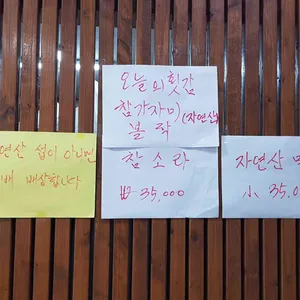 연산 섭이 아니면
배 배상합니다
오늘의 횟감
참가자미 (자연산)
볼 락
참 소 라
35,000
자연산
小 35.0